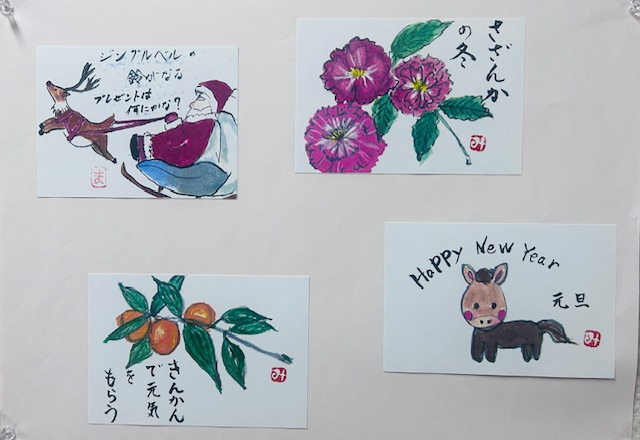 ジングルベルの
鈴がなる
プレゼントは
何にかな？
ま
さざんか
の冬
み
Happy New Year
元旦
み
きんかん
で元気
を
もらう
み